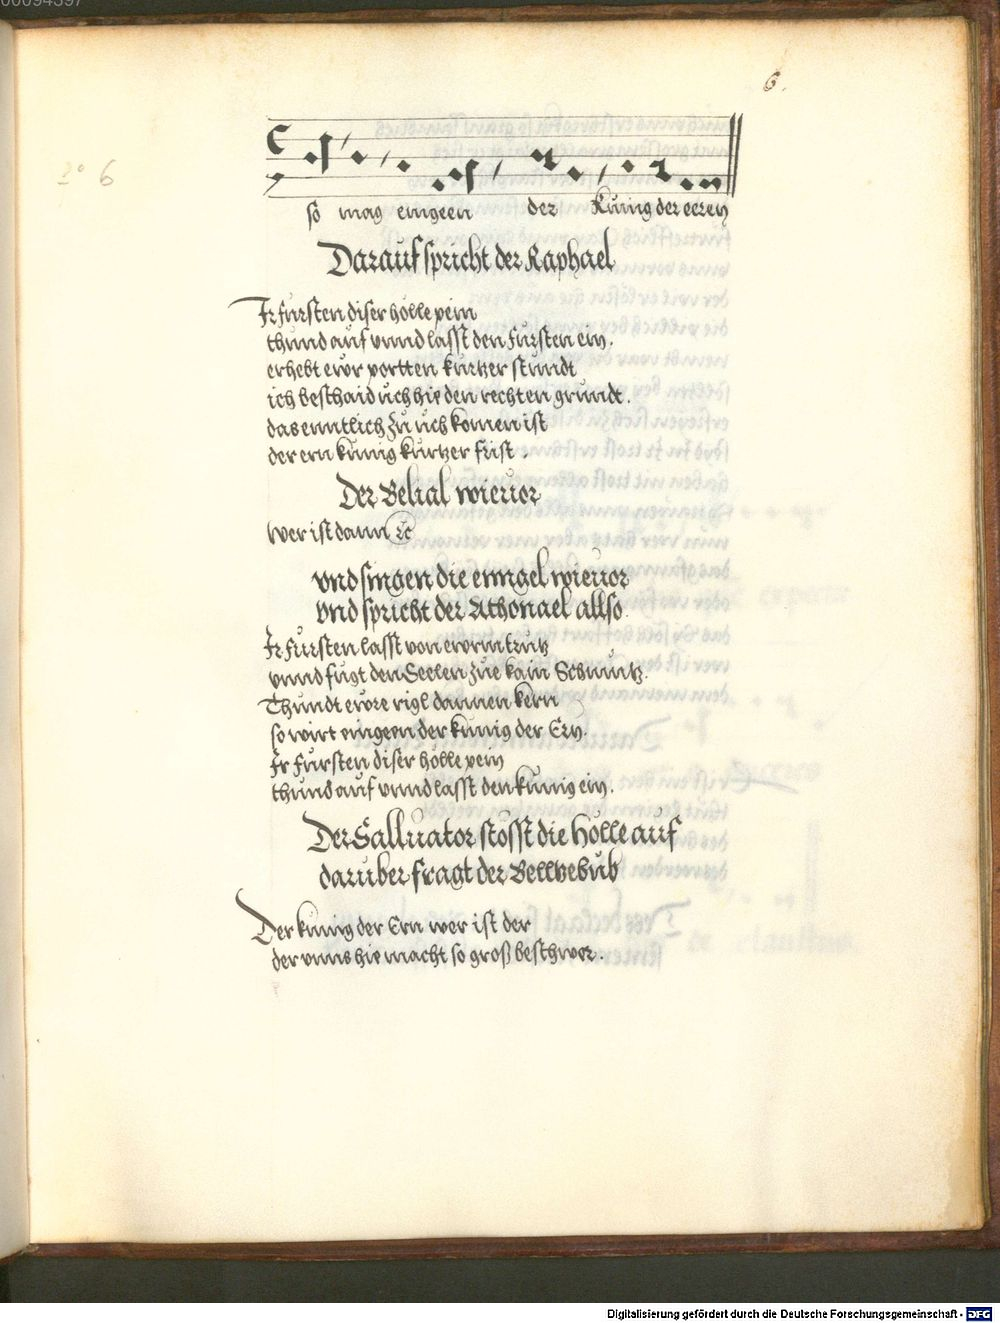 6.
2° 6
so mag eingeen der Kunig der eeren
Darauf spricht der Raphael
Ir fursten diser holle pein
thund auf vnnd lasst den fursten ein.
erhebt ewr portten kurtzer stundt
ich beschaid uch hie den rechten grundt.
das enntlich zu uch komen ist
der ern kunig kurtzer frist.
Der Belial wieuor
Wer ist dann ꝛc
vnd singen die enngel wieuor
vnd spricht der Athonael allso.
Ir fursten lasst von ewrm trutz
vnnd fugt den Seelen zue kain Schmutz.
Thundt ewre rigl dannen kern
so wirt eingeen der kunig der Ern.
Ir fursten diser holle pein
thund auf vnnd lasst den kunig ein.
Der Salluator stosst die holle auf
daruber fragt der Bellzebub
Der kunig der Ern wer ist der
der vnns hie macht so groß beschwer.
Digitalisierung gefördert durch die Deutsche Forschungsgemeinschaft - DFG